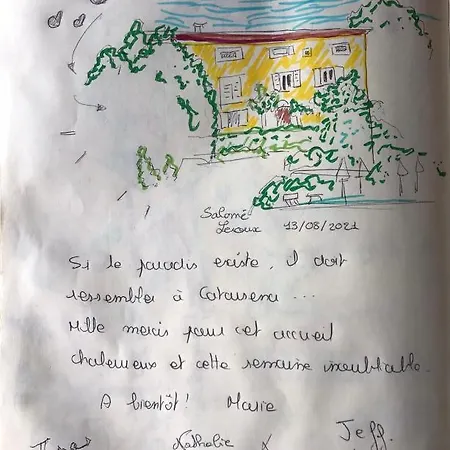 Salomé
Leroux 13/08/2021
Si le paradis existe, il doit
ressembler à Catausena ...
Mille mercis pour cet accueil
chaleureux et cette semaine inoubliable.
A bientôt! Marie
Nathalie Jeff.